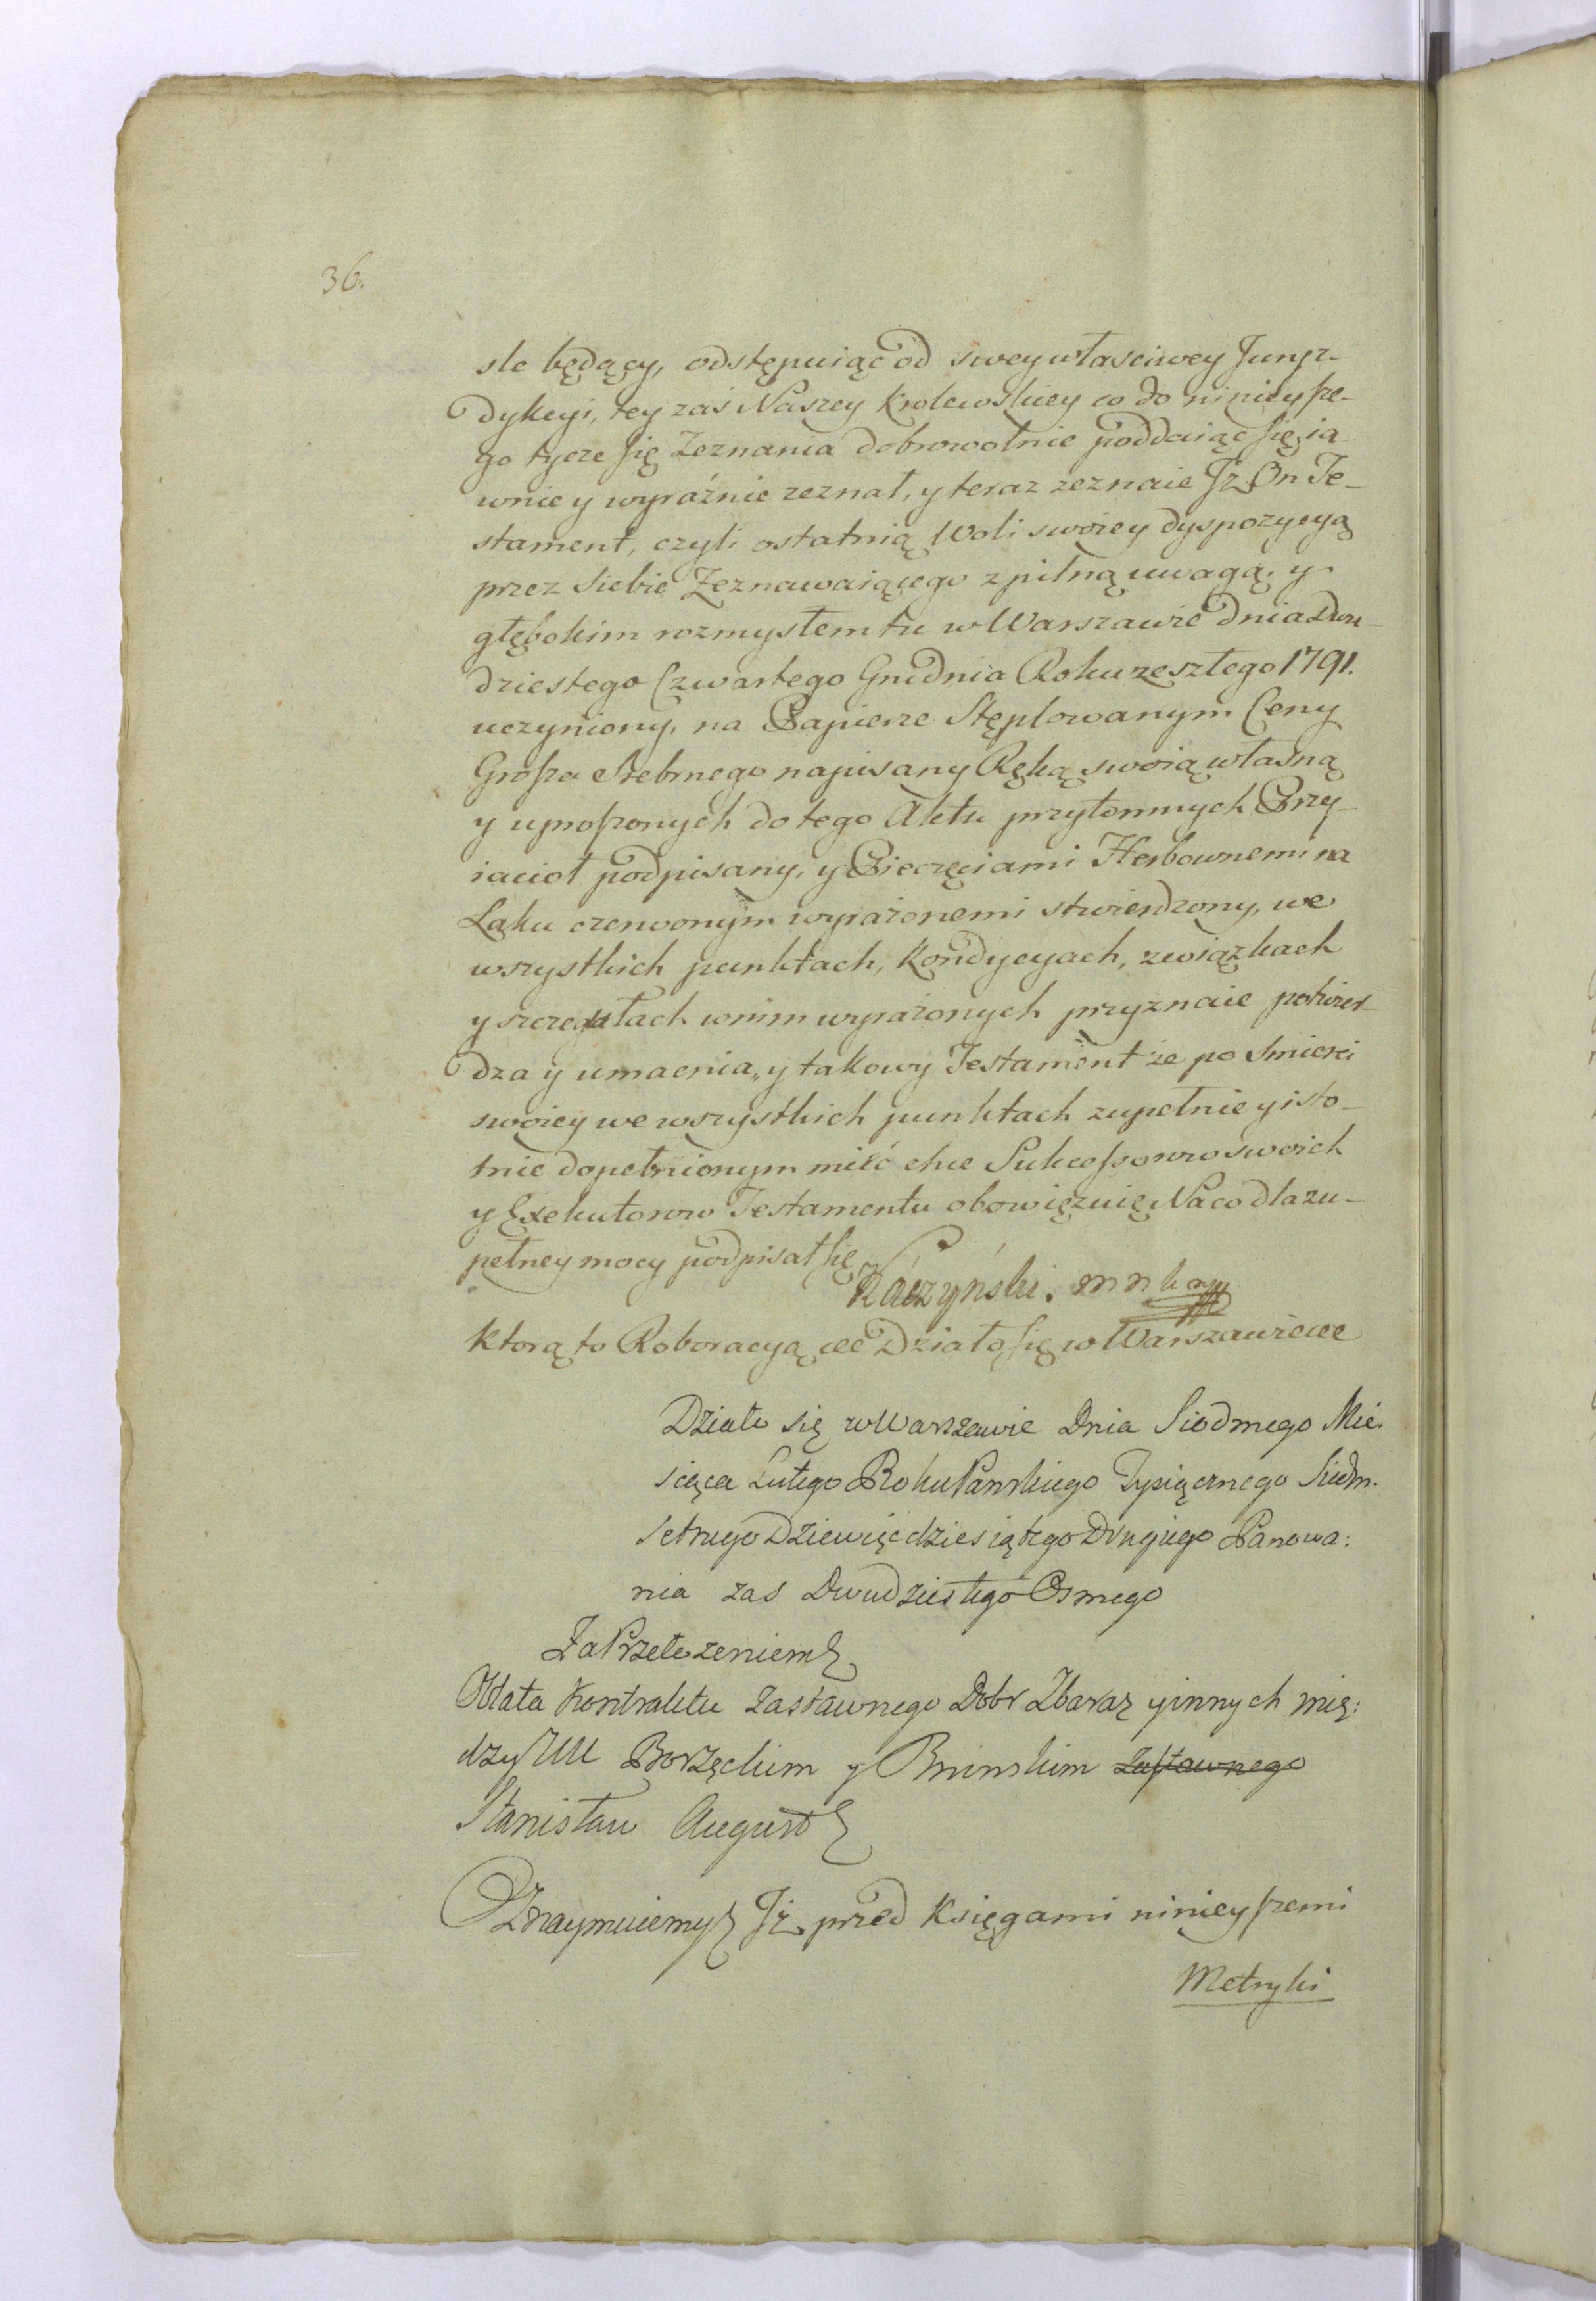 36.
sle będący, odstępuiąc od swey własciwey Juryz-
dykcyi, tey zaś Naszey Krolewskiey co do ninieysze-
go tycze się Zeznania dobrowolnie poddaiąc się ia
wnie y wyraźnie zeznał, y teraz zeznaie Jż On Te-
stament, czyli ostatnią Woli swoiey dyspozycyą
przez Siebie Zeznawaiącego z pilną uwagą y
głębokim rozmysłem tu w Warszawie dnia Dwu-
dziestego Czwartego Grudnia Roku zeszłego 1791.
uczyniony, na Papierze Stęplowanym Ceny
Grosza Srebrnego napisany Ręką swoią własną
y uproszonych do tego Aktu przytomnych Przy-
iacioł podpisany, y Pieczęciami Herbownemi na
Laku czerwonym wyrażonemi stwierdzony, we
wszystkich punktach, Kondycyach, związkach
y szczegułach w nim wyrażonych przyznaie potwier-
dza y umacnia, y takowy Testament że po Smierci
swoiey we wszystkich punktach zupełnie y isto-
tnie dopełnionym mieć chce Sukcessorow swoich
y Exekutorow Testamentu obowięzuię Na co dla zu-
pełney mocy podpisał się
Raczyński. m n k
Ktorą to Roboracyą &c Działo się w Warszawie &c
Działo się w Warszawie Dnia Siodmego Mie.
siąca Lutego Roku Panskiego Tysiącznego Siedm.
setnego Dziewięcdziesiątego Drugiego Panowa:
nia zas Dwudziestego Osmego
Za Przełozeniem
Oblata Kontraktu Zastawnego Dobr Zbaraz y innych mię:
dzy UU Borzęckim y Bninskim Zastawnego
Stanisław August
Oznaymuiemy Jż przed Księgami ninieyszemi
Metryki